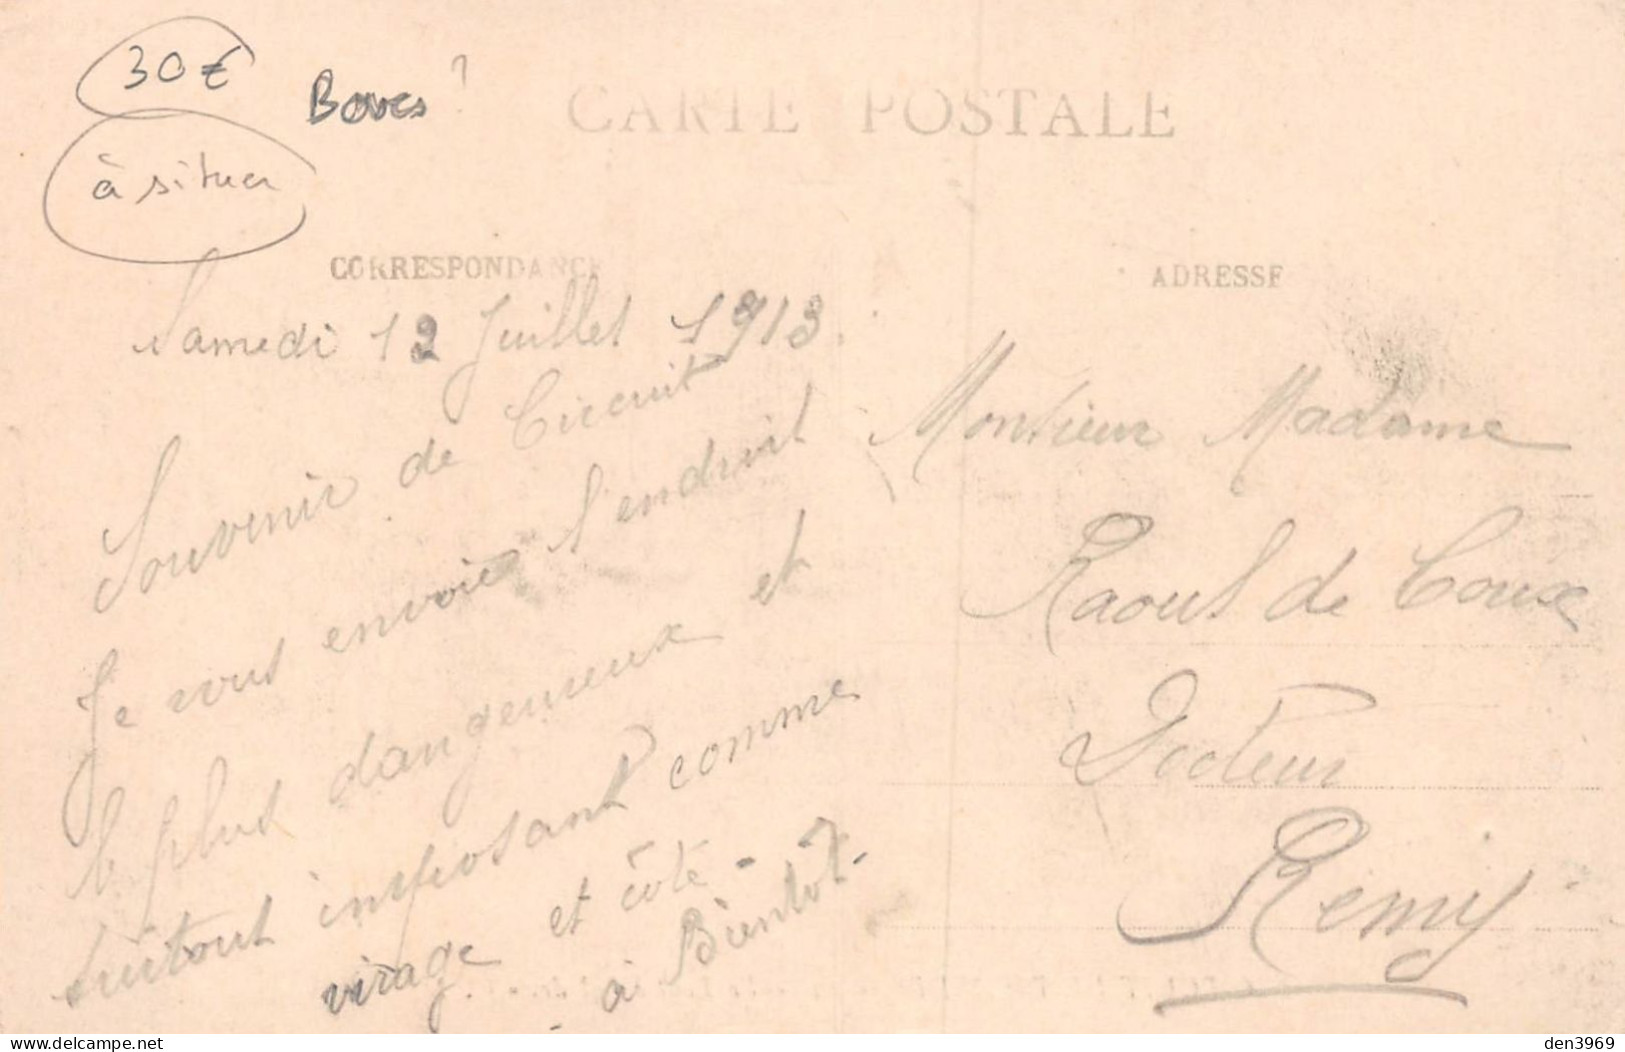 30€
Boves ?
à situer
CARTE POSTALE
CORRESPONDANCE
ADRESSE
Samedi 12 Juillet 1913.
Souvenir de Circuit
Je vous envoies l'endroit
le plus dangereux et
surtout imposant comme
virage et côte -
à Bientôt -
Monsieur Madame
Raoul de Coux
Docteur
Remy
www.delcampe.net
den3969